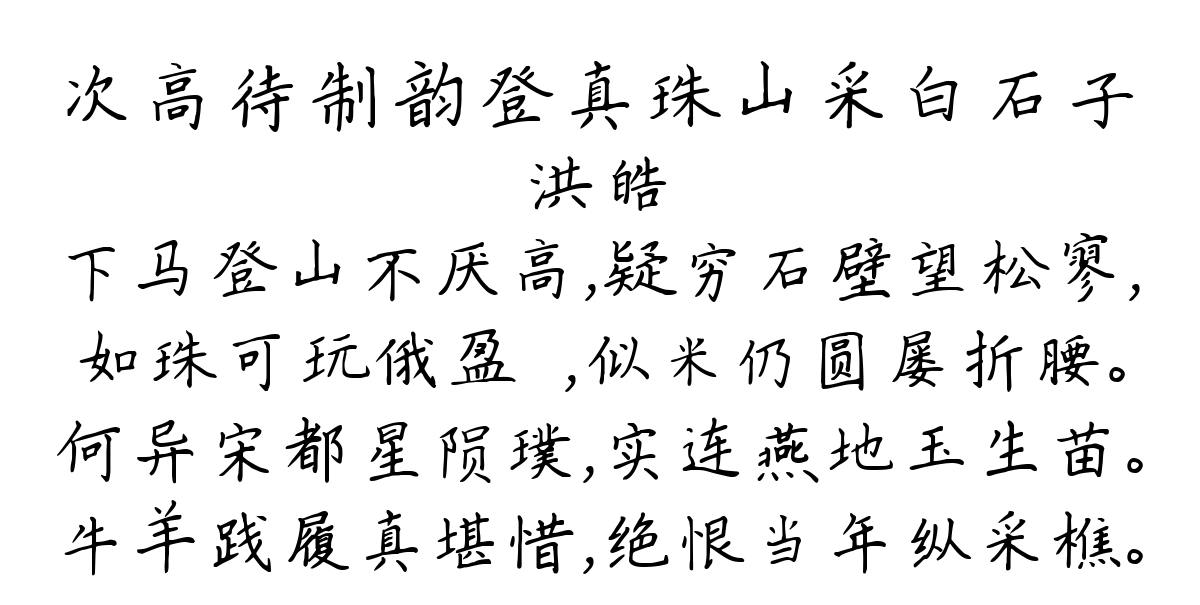 次高待制韵登真珠山采白石子
洪皓
下马登山不厌高,疑穷石壁望松寥,
如珠可玩俄盈 ,似米仍圆屡折腰。
何异宋都星陨璞,实连燕地玉生苗。
牛羊践履真堪惜,绝恨当年纵采樵。